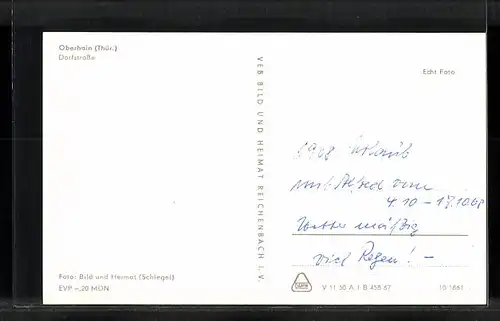 Oberhain (Thür.)
Dorfstraße
VEB BILD UND HEIMAT REICHENBACH I. V.
Echt Foto
1968 Urlaub
mit Alfred vom
4.10 - 17.10.68
Wetter mäßig
viel Regen! -
Foto: Bild und Heimat (Schlegel)
EVP -,20 MDN
V 11 50 A 1 B 458 67
10 1661